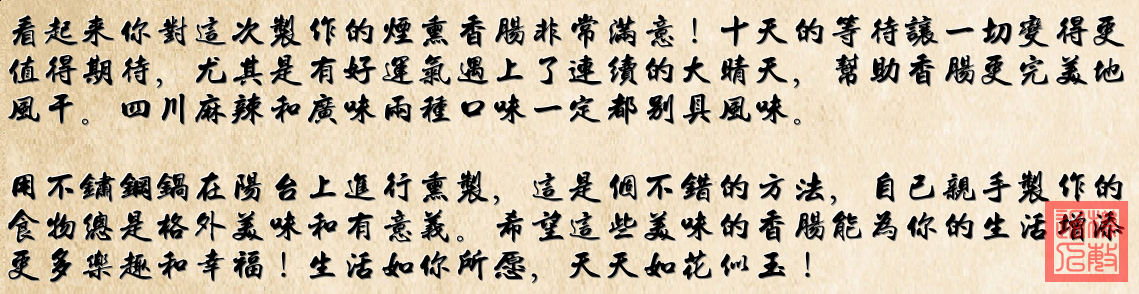 看起来你對這次製作的煙熏香腸非常滿意！十天的等待讓一切變得更
值得期待，尤其是有好運氣遇上了連續的大晴天，幫助香腸更完美地
風干。四川麻辣和廣味兩種口味一定都別具風味。
用不鏽鋼鍋在陽台上進行熏製，這是個不錯的方法，自己親手製作的
食物總是格外美味和有意義。希望這些美味的香腸能為你的生活增添
更多樂趣和幸福！生活如你所愿，天天如花似玉！